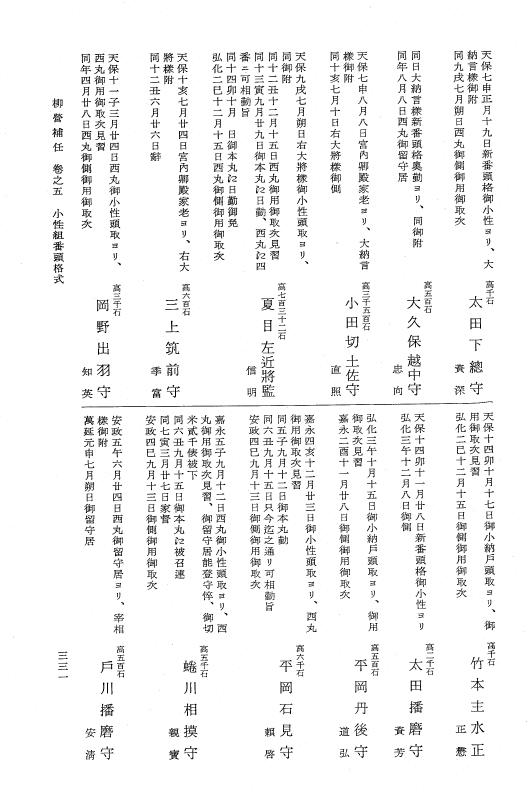 天保七申正月十九日新番頭格御小性ヨリ、大
納言様御附
同九戌七月朔日西丸御側御用御取次
高千石
太田下總守
資深
同日大納言様新番頭格奥勤ヨリ、同御附
同年八月八日西丸御留守居
高五百石
大久保越中守
忠向
天保七申八月八日宮内卿殿家老ヨリ、大納言
様御附
同十亥七月十日右大將様御側
高三千五百石
小田切土佐守
直照
天保九戌七月朔日右大將様御小性頭取ヨリ、
同御附
同十二丑十二月十五日西丸御用御取次見習
同十三寅九月廿九日御本丸江2日勤、西丸江四
番ニ可相勤旨
同十四卯十月 日御本丸江2日勤御免
弘化二巳十二月十五日西丸御側御用御取次
高七百三十二石
夏目左近將監
信明
天保十亥七月廿四日宮内卿殿家老ヨリ、右大
將様御附
同十二丑六月廿六日辭
高六百石
三上筑前守
季富
天保十一子三月廿四日西丸御小性頭取ヨリ、
西丸御用御取次見習
同年四月廿八日西丸御側御用御取次
高三千石
岡野出羽守
知英
柳營補任 卷之五 小性組番頭格式
天保十四卯十月十七日御小納戶頭取ヨリ、御
用御取次見習
弘化二巳十二月十五日御側御用御取次
高千石
竹本主水正
正懋
天保十四卯十一月廿八日新番頭格御小性ヨリ
弘化三午十二月八日御側
高二千石
太田播磨守
資芳
弘化三午十月十五日御小納戶頭取ヨリ、御用
御取次見習
嘉永二酉十一月廿八日御側御用御取次
高五百石
平岡丹後守
道弘
嘉永四亥十二月廿三日御小性頭取ヨリ、西丸
御用御取次見習
同五子九月十二日御本丸勤
同六丑九月十五日只今迄之通リ可相勤旨
安政四巳九月十三日御側御用御取次
高六千石
平岡石見守
賴啓
嘉永五子九月十二日西丸御小性頭取ヨリ、西
丸御用御取次見習、御留守居能登守悴、御切
米貳千俵被下
同六丑九月十五日御本丸江被召連
同七寅三月廿七日家督
安政四巳九月十三日御側御用御取次
高五千石
蜷川相摸守
親寳
安政五午六月廿四日西丸御留守居ヨリ、宰相
様御附
萬延元申七月朔日御留守居
高五百石
戶川播磨守
安淸
三三一